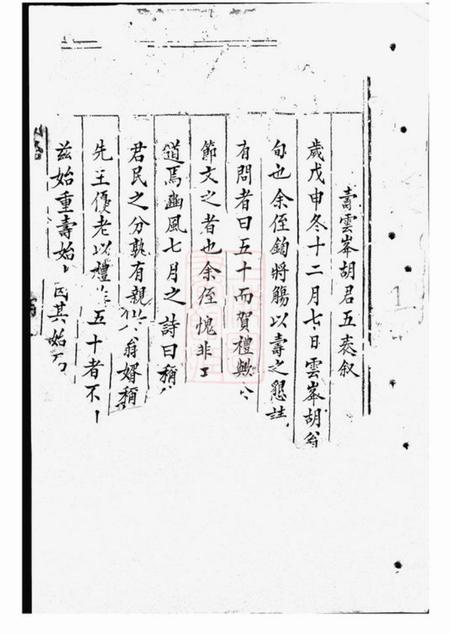 壽雲峯胡君五袠叙
歲戊申冬十二月七日雲峯胡翁
旬也余侄鈞將觴以壽之懇
有問者曰五十而賀禮歟
節文之者也余侄愧非
道焉豳風七月之詩曰稱
君民之分孰有親翁婿稱
先王優老以禮五十者不
茲始重壽始其始